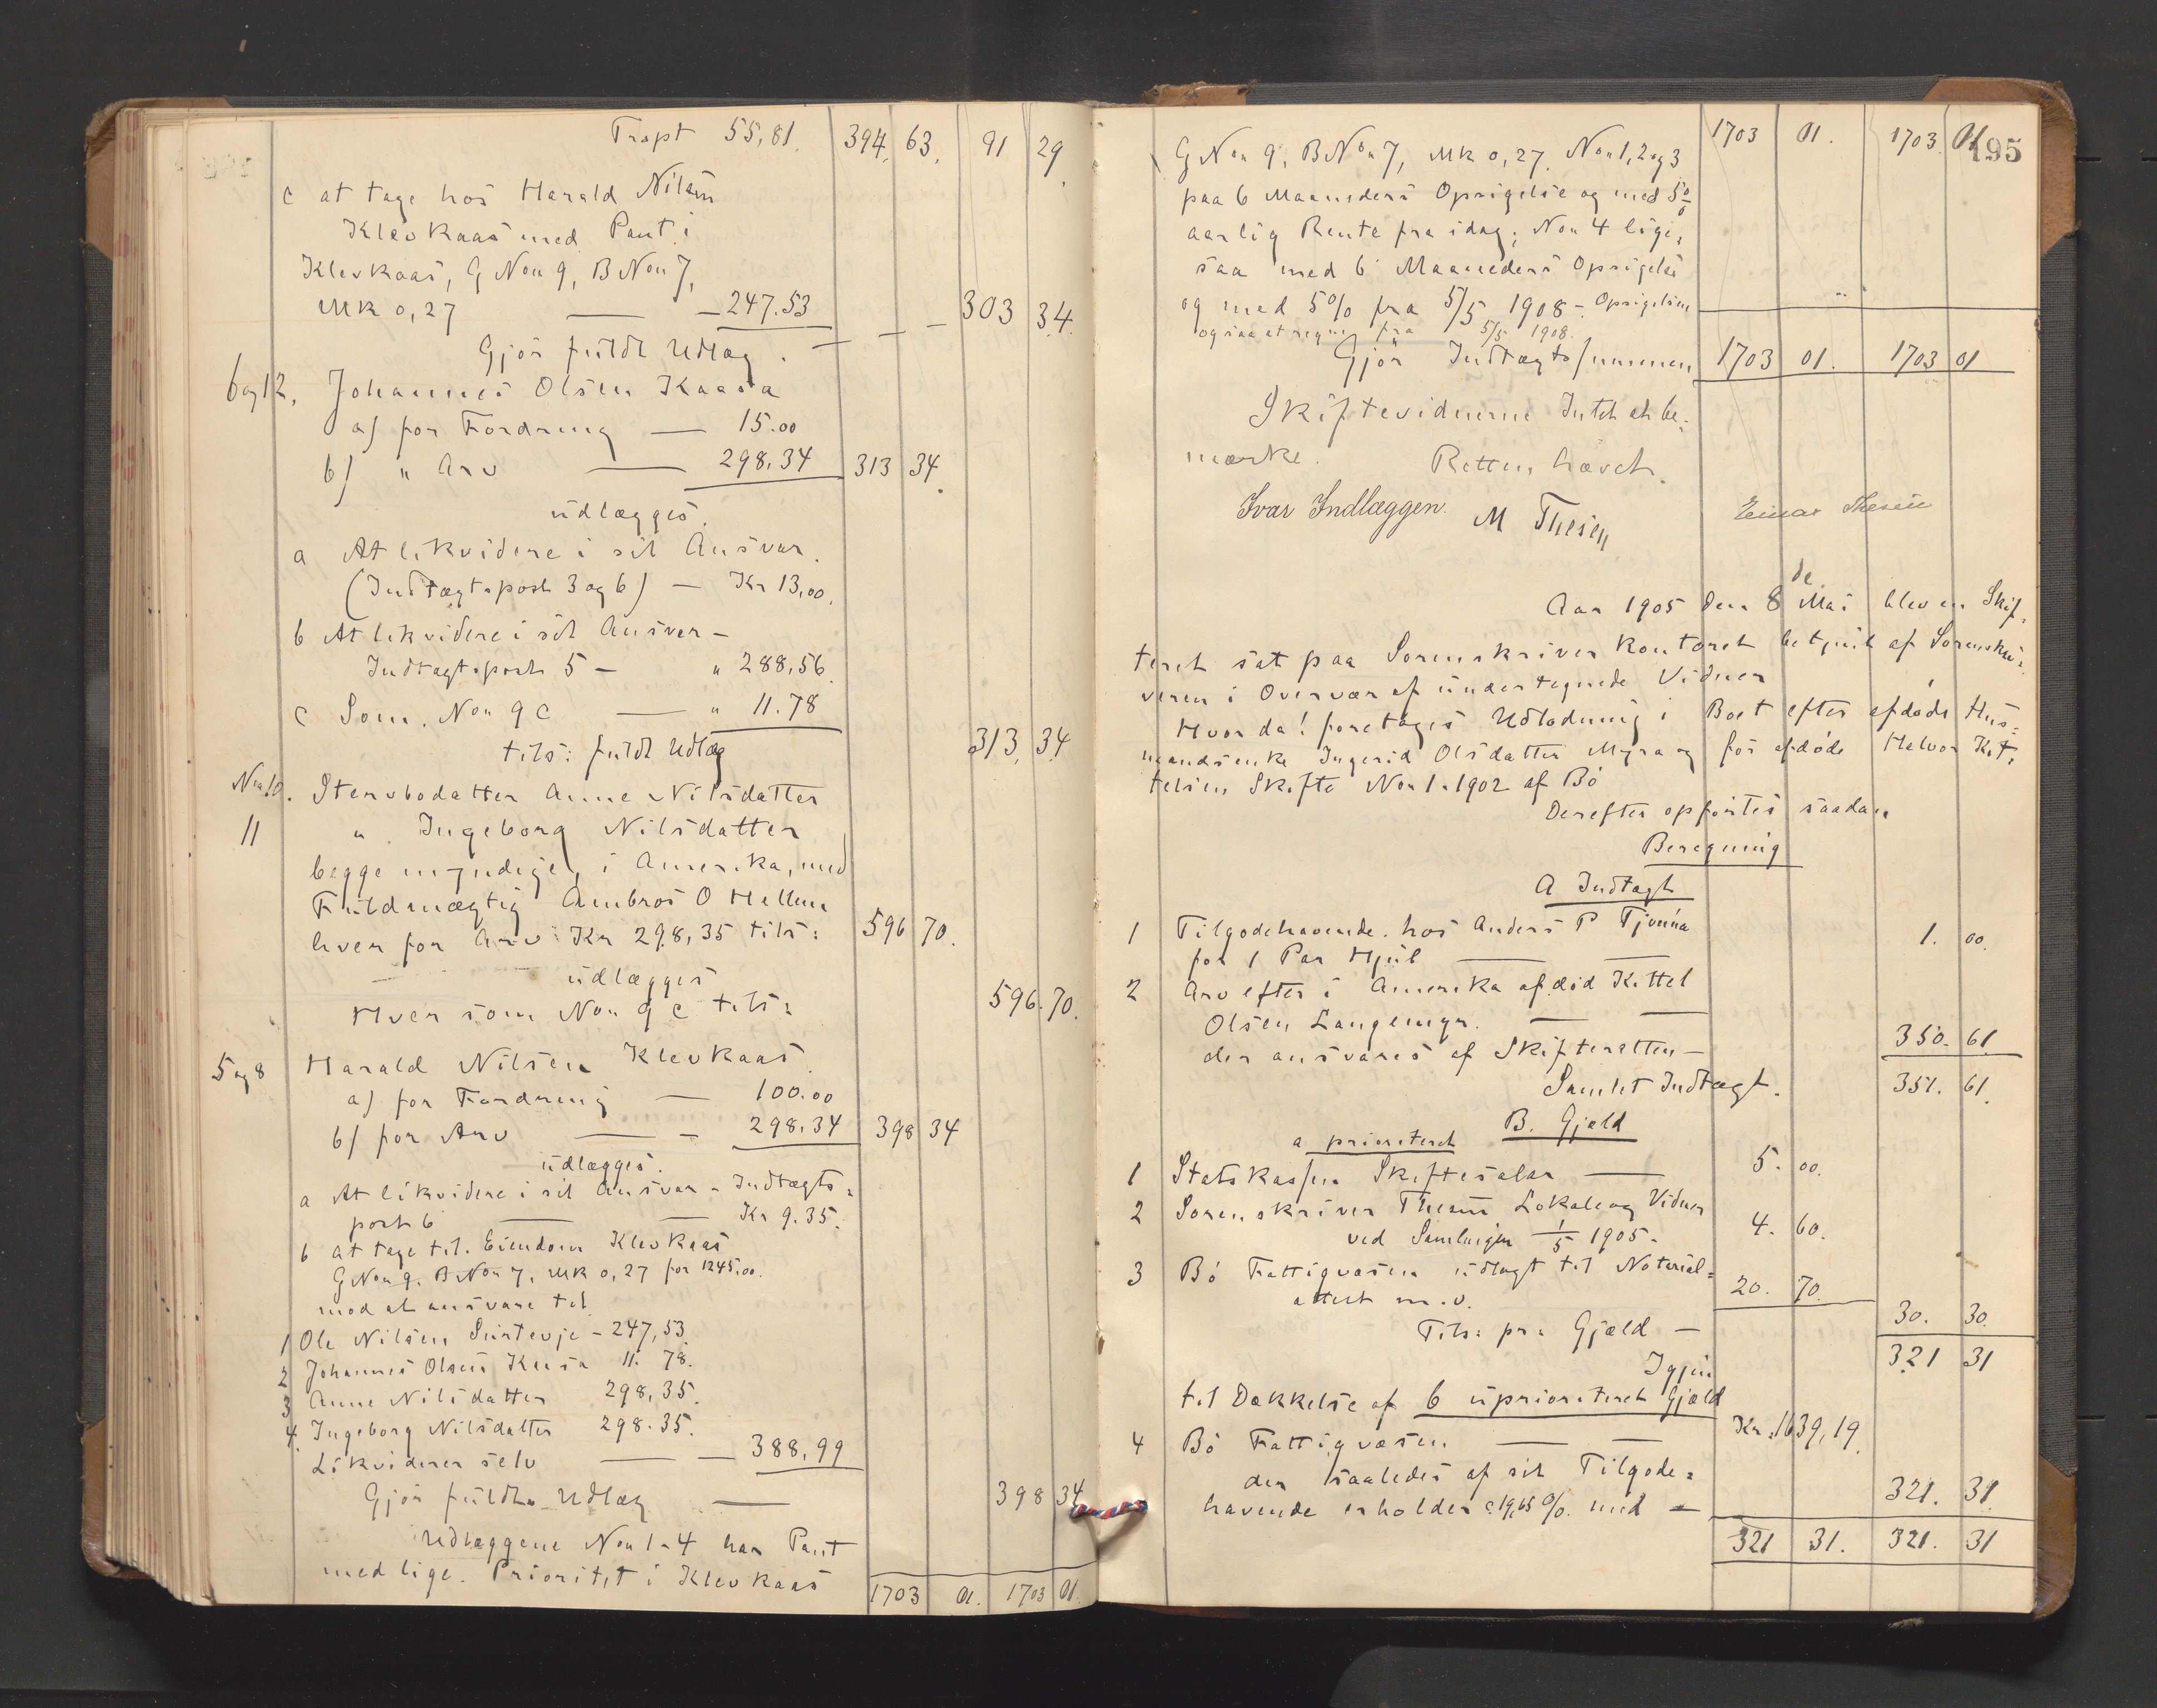 Trspt 55,81. 394, 63, 91 29
c at tage hos Harald Nilsen
Klevkaas med Pant i
Klevkaas, G Non 9, B Non 7,
Mk 0,27 — 247.53
Gjör fuldt Udlæg. — — — 303 34.
6 og 12. Johannes Olsen Kaasa
a) for Fordring — 15.00
b) " Arv — 298,34 313 34.
udlægges.
a At likvidere i sit Ansvar.
(Indtægtspost 3 og 6) — Kr 13,00.
b At likvidere i sit Ansvar —
Indtægtspost 5 — " 288,56
c Som Non 9 c — " 11.78
tils: fuldt Udlæg 313, 34.
Non 10. Stervbodatter Anne Nilsdatter
11 " Ingeborg Nilsdatter
begge myndige, i Amerika, med
Fuldmægtig Ambros O Hellem
hver for Arv Kr 298,35 tils: 596 70.
udlægges
Hver som Non 9 c tils: 596.70.
5 og 8 Harald Nilsen Klevkaas
a) for Fordring — 100.00
b) for Arv — 298.34 398 34
udlægges.
a At likvidere i sit Ansvar - Indtægts=
post 6 — Kr 9.35.
b at tage til Eiendom Klevkaas
G Non 9, B Non 7, Mk 0,27 for 1245,00.
mod at ansvare til
1 Ole Nilsen — 247,53.
2 Johannes Olsen Kaasa 11. 78.
3 Anne Nilsdatter 298,35.
4. Ingeborg Nilsdatter 298.35.
Likviderer selv — 388,99
Gjör fuldt Udlæg — 398 34
Udlæggene Non 1-4 har Pant
med lige Prioritet i Klevkaas
1703 01. 1703 01.
195
1703 01. 1703. 01
G Non 9, B Non 7, Mk 0,27. Non 1, 2 og 3
paa 6 Maaneders Opsigelse og med 5%
aarlig Rente fra idag; Non 4 lige=
saa med 6 Maaneders Opsigelse
og med 5% fra 5/5 1908 - Opsigelsen
ogsaa at regne fra 5/5 1908.
Gjör Indtægtssummen 1703 01. 1703 01
Skiftevidnerne Intet at be=
mærke. Retten hævet.
Ivar Indlæggen. M Thesen Einar Thesen
Aar 1905 den 8de Mai blev en Skif=
teret sat paa Sorenskriverkontoret betjent af Sorenskri=
veren i Overvær af undertegnede Vidner
Hvor da! foretages Udlodning i Boet efter afdøde Hus=
mandsenke Ingerid Olsdatter Myra og før afdøde Halvor Kit=
telsen Skifte Non 1-1902 af Bö
Derefter opførtes saadan
Beregning
A Indtægt
1 Tilgodehavende hos Anders P Tjønna
for 1 Par Hjul — 1. 00.
2 Arv efter i Amerika afdød Kittel
Olsen Langemyr. —
der ansvares af Skifteretten — 350. 61.
Samlet Indtægt. 351. 61.
B. Gjæld
a prioriteret
1 Statskassen Skiftesalær — 5. 00.
2 Sorenskriver Thesen Lokale og Vidner
ved Samlingen 1/5 1905. 4. 60.
3 Bö Fattigvæsen udlagt til Notarial=
attest m.v. 20. 70.
Tils: pr: Gjæld — 30. 30.
Igjen 321 31
til Dækkelse af b uprioriteret Gjæld
4 Bö Fattigvæsen — Kr. 1639,19.
der saaledes af sit Tilgode=
havende erholder c: 19,65 %. med — 321. 31.
321 31. 321. 31